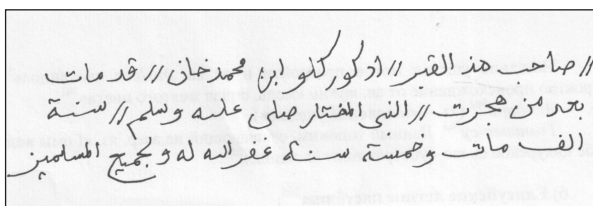 // صاحب هذ القبر // ادكوركلو ابن محمد خان // قد مات
بعد من هجرت // النبى المختار صلى عليه وسلم // سنة
الف مات وخمسة سنة غفر الله له ولجميع المسلمين